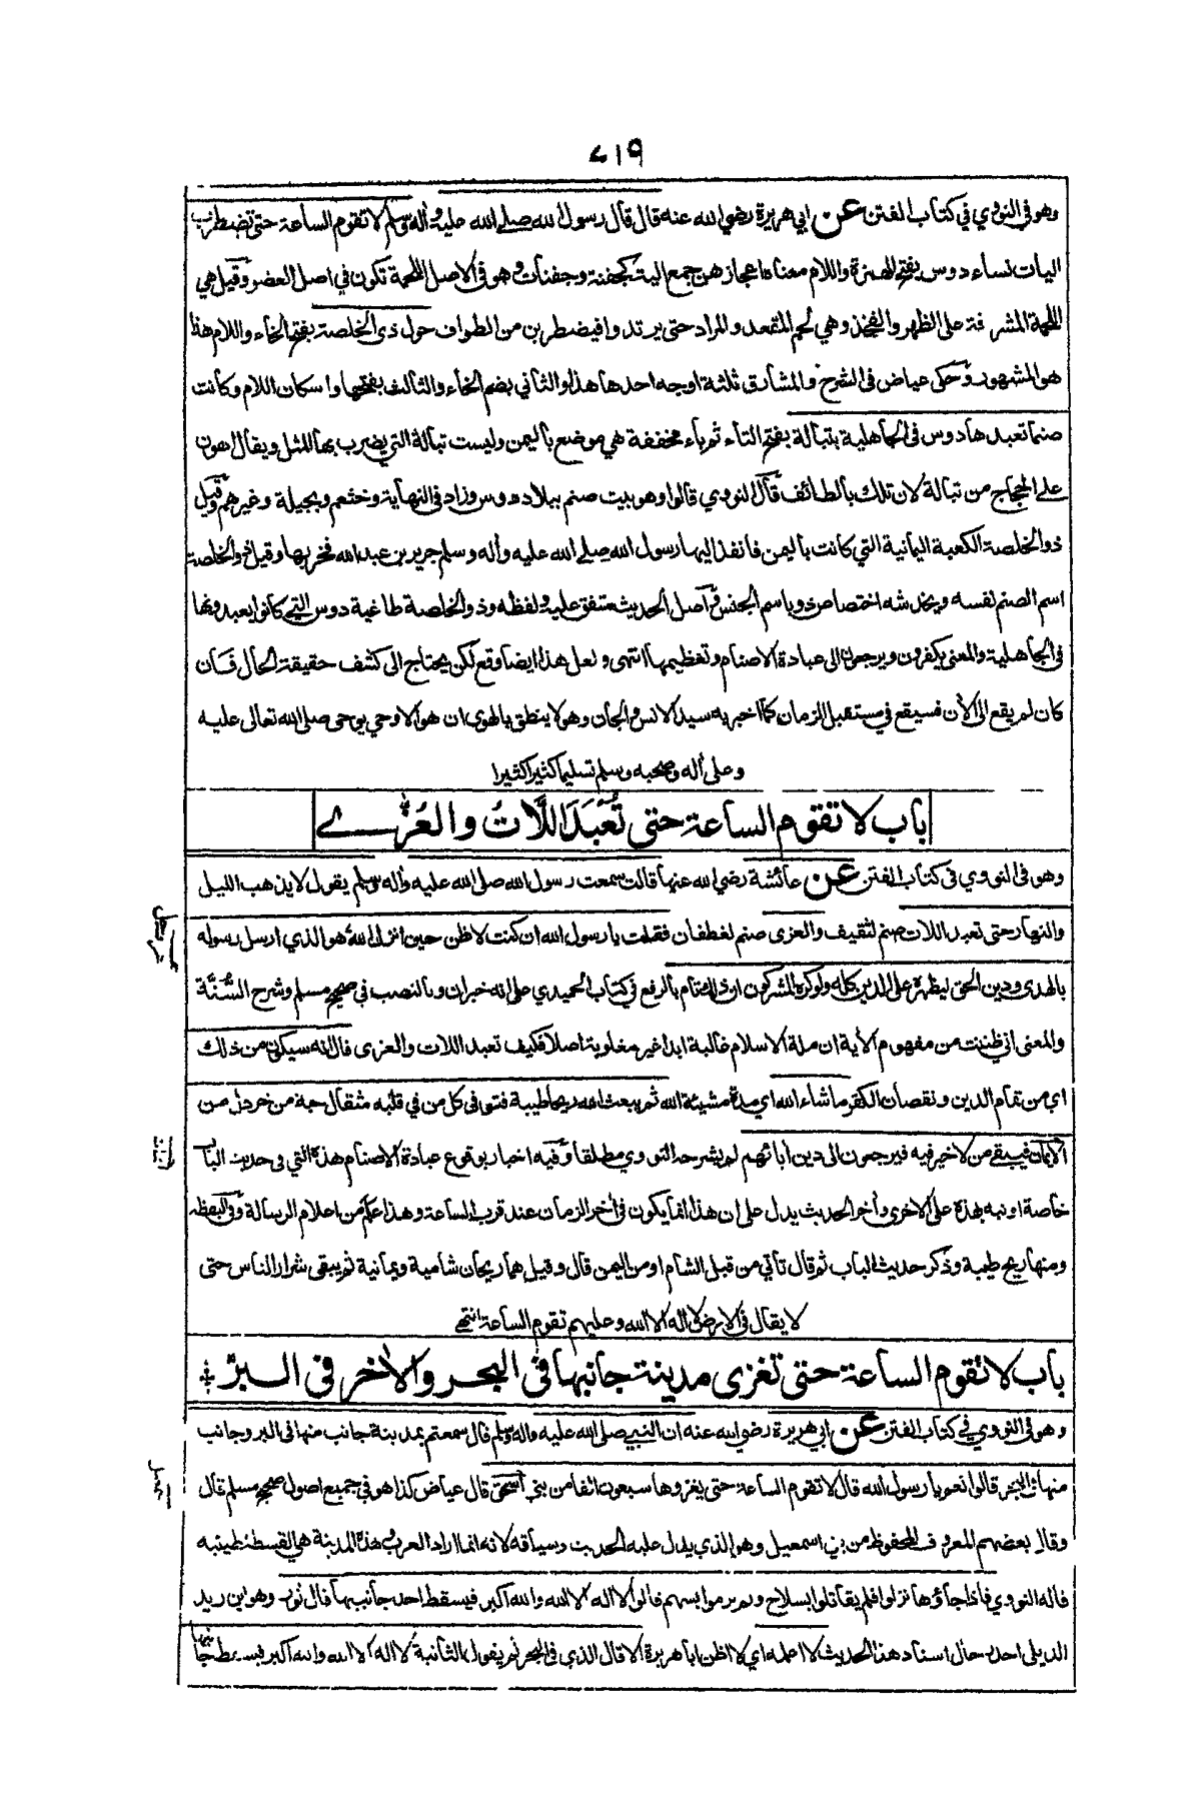 ٧١٩
وهو في النووي في كتاب الفتن عن ابي هريرة رضي الله عنه قال قال رسول الله صلى الله عليه وآله وسلم لا تقوم الساعة حتى تضطرب
اليات نساء دوس بفتح الهمزة واللام معناه اعجازهن جمع الية كجفنة وجفنات وهو في الاصل اللحمة تكون في اصل العضو وقيل هي
اللحمة المشرفة على الظهر والفخذ وهي لحم المقعد والمراد حتى يرتدوا فيضطربن من الطواف حول ذى الخلصة بفتح الخاء واللام هذا
هو المشهور وحكى عياض في الشرح والمشارق ثلثة اوجه احدها هذا والثاني بضم الخاء والثالث بفتحها واسكان اللام وكانت
صنما تعبدها دوس في الجاهلية بتبالة بفتح التاء ثم باء مخففة هي موضع باليمن وليست تبالة التي يضرب بها المثل ويقال اهون
على الحجاج من تبالة لان تلك بالطائف قال النووي قالوا وهو بيت صنم ببلاد دوس وزاد في النهاية وخثعم وبجيلة وغيرهم وقيل
ذو الخلصة الكعبة اليمانية التي كانت باليمن فانفذ اليها رسول الله صلى الله عليه وآله وسلم جرير بن عبد الله فخربها وقيل ذو الخلصة
اسم الصنم نفسه ويخدشه اختصاص ذو باسم الجنس وأصل الحديث متفق عليه ولفظه وذو الخلصة طاغية دوس التي كانوا يعبدونها
في الجاهلية والمعنى يكفرون ويرجعون الى عبادة الاصنام وتعظيمها انتهى ولعل هذا ايضا وقع لكن يحتاج الى كشف حقيقة الحال فان
كان لم يقع الى الأن فسيقع في مستقبل الزمان كما اخبر به سيد الانس والجان وهو لا ينطق بالهوى ان هو الا وحي يوحى صلى الله تعالى عليه
وعلى أله وصحبه وسلم تسليما كثيرا كثيرا
باب لا تقوم الساعة حتى تُعْبَدَ اللَّاتُ والعُزّى
وهو في النووي في كتاب الفتن عن عائشة رضي الله عنها قالت سمعت رسول الله صلى الله عليه وآله وسلم يقول لا يذهب الليل
والنهار حتى تعبد اللات صنم لثقيف والعزى صنم لغطفان فقلت يا رسول الله ان كنت لاظن حين انزل الله هو الذي ارسل رسوله
بالهدى ودين الحق ليظهره على الدين كله ولو كره المشركون ان ذلك تام بالرفع في كتاب الحميدي على انه خبر ان وبالنصب في صحيح مسلم وشرح السُّنَّة
والمعنى اني ظننت من مفهوم الأية ان ملة الاسلام غالبة ابدا غير مغلوبة اصلا فكيف تعبد اللات والعزى قال انه سيكون من ذلك
اي من تمام الدين ونقصان الكفر ما شاء الله اي مدة مشيئة الله ثم يبعث الله ريحا طيبة فتوفى كل من في قلبه مثقال حبة من خردل من
الايمان فيبقى من لا خير فيه فيرجعون الى دين أبائهم لم يشرحه النووي مطلقا وفيه اخبار بوقوع عبادة الاصنام هذه التي في حديث الباب
خاصة او نبه بهذه على الاخرى وأخر الحديث يدل على ان هذا انما يكون في أخر الزمان عند قرب الساعة وهذا علم من اعلام الرسالة وفي اليقظة
ومنها ريح طيبة وذكر حديث الباب ثم قال تأتي من قبل الشام او من اليمن قال وقيل هما ريحان شامية ويمانية ثم يبقى شرار الناس حتى
لا يقال في الارض لا اله الا الله وعليهم تقوم الساعة انتهى
باب لا تقوم الساعة حتى تغزى مدينة جانبها في البحر والأخر في البرّ
وهو في النووي في كتاب الفتن عن ابي هريرة رضي الله عنه ان النبي صلى الله عليه واله وسلم قال سمعتم بمدينة جانب منها في البر وجانب
منها في البحر قالوا نعم يا رسول الله قال لا تقوم الساعة حتى يغزوها سبعون الفا من بني اسحق قال عياض كذا هو في جميع اصول صحيح مسلم قال
وقال بعضهم المعروف المحفوظ من بني اسمعيل وهو الذي يدل عليه الحديث وسياقه لانه انما اراد العرب وهذه المدينة هي القسطنطينية
قاله النووي فاذا جاؤها نزلوا فلم يقاتلوا بسلاح ولم يرموا بسهم قالوا لا اله الا الله والله اكبر فيسقط احد جانبيها قال ثور وهو ابن زيد
الديلي احد رجال اسناد هذا الحديث لا اعلمه اي لا اظن ابا هريرة الا قال الذي في البحر ثم يقول الثانية لا اله الا الله والله اكبر فيسقط جانبها